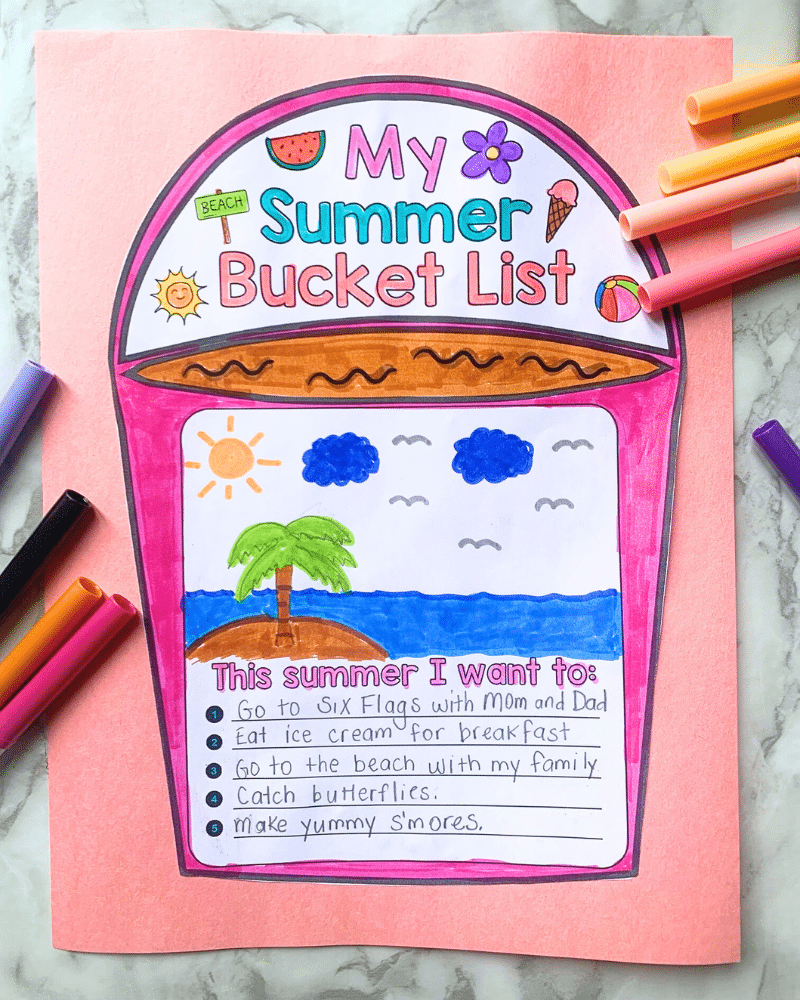 My
BEACH
Summer
Bucket List
This summer I want to:
1 Go to Six Flags with Mom and Dad
2 Eat ice cream for breakfast
3 Go to the beach with my family
4 Catch butterflies.
5 Make yummy s'mores.